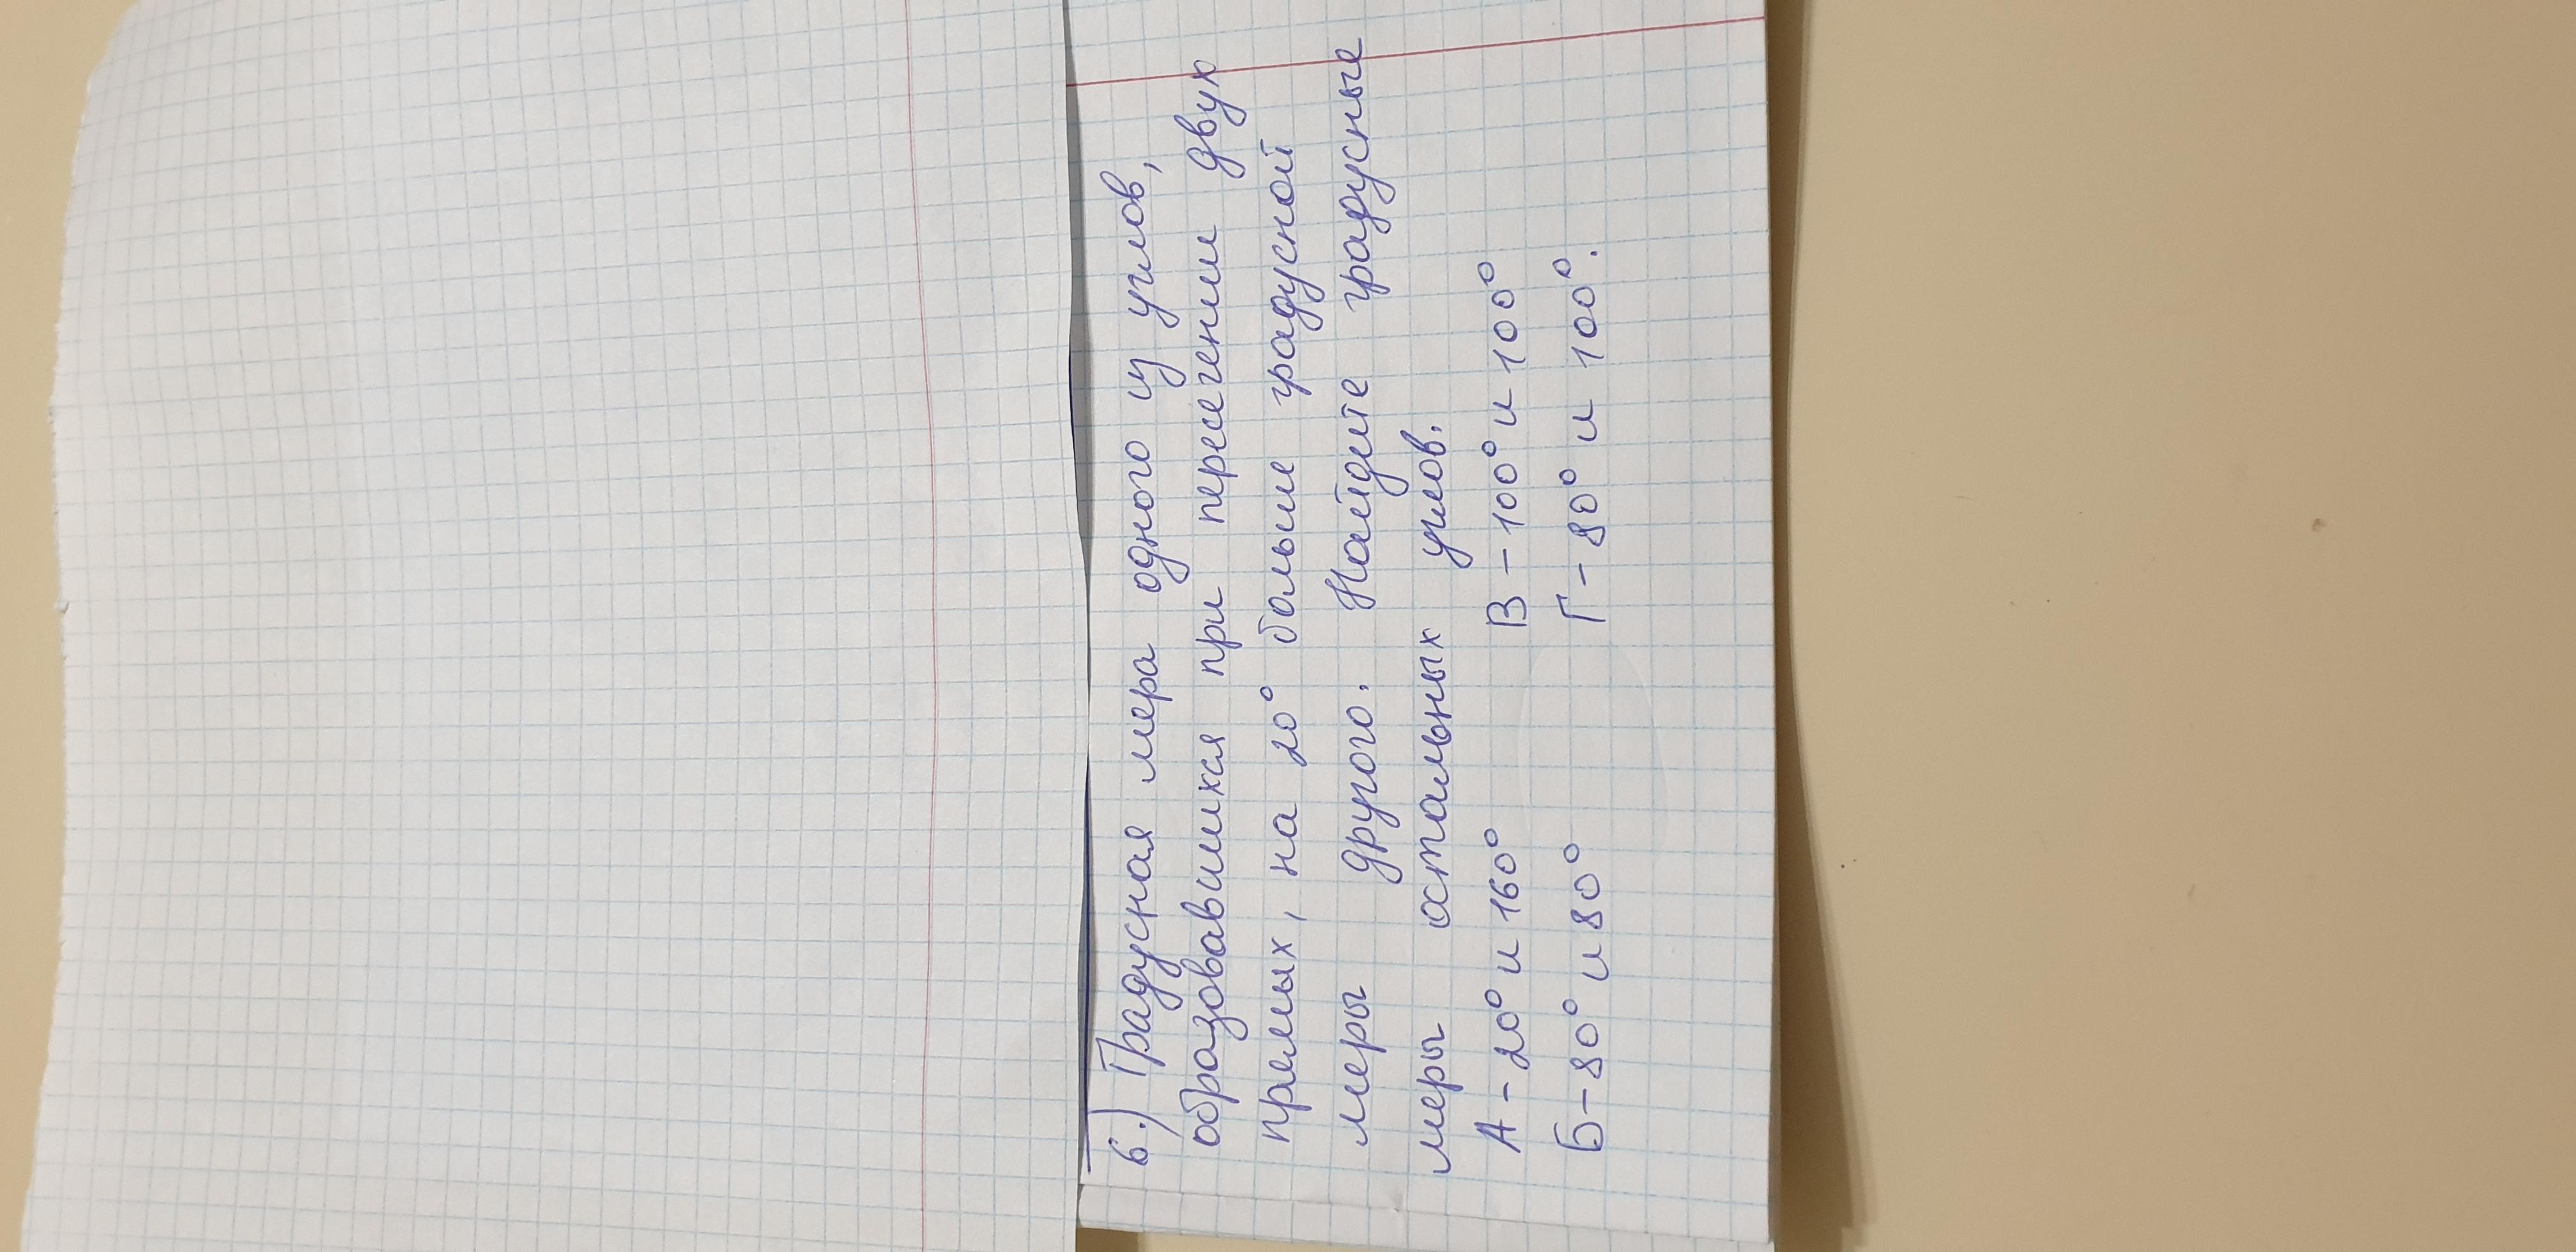 6.) Градусная мера одного из углов,
образовавшихся при пересечении двух
прямых, на 20° больше градусной
меры другого. Найдите градусные
меры остальных углов.
А - 20° и 160° В - 100° и 100°
Б - 80° и 80° Г - 80° и 100°.